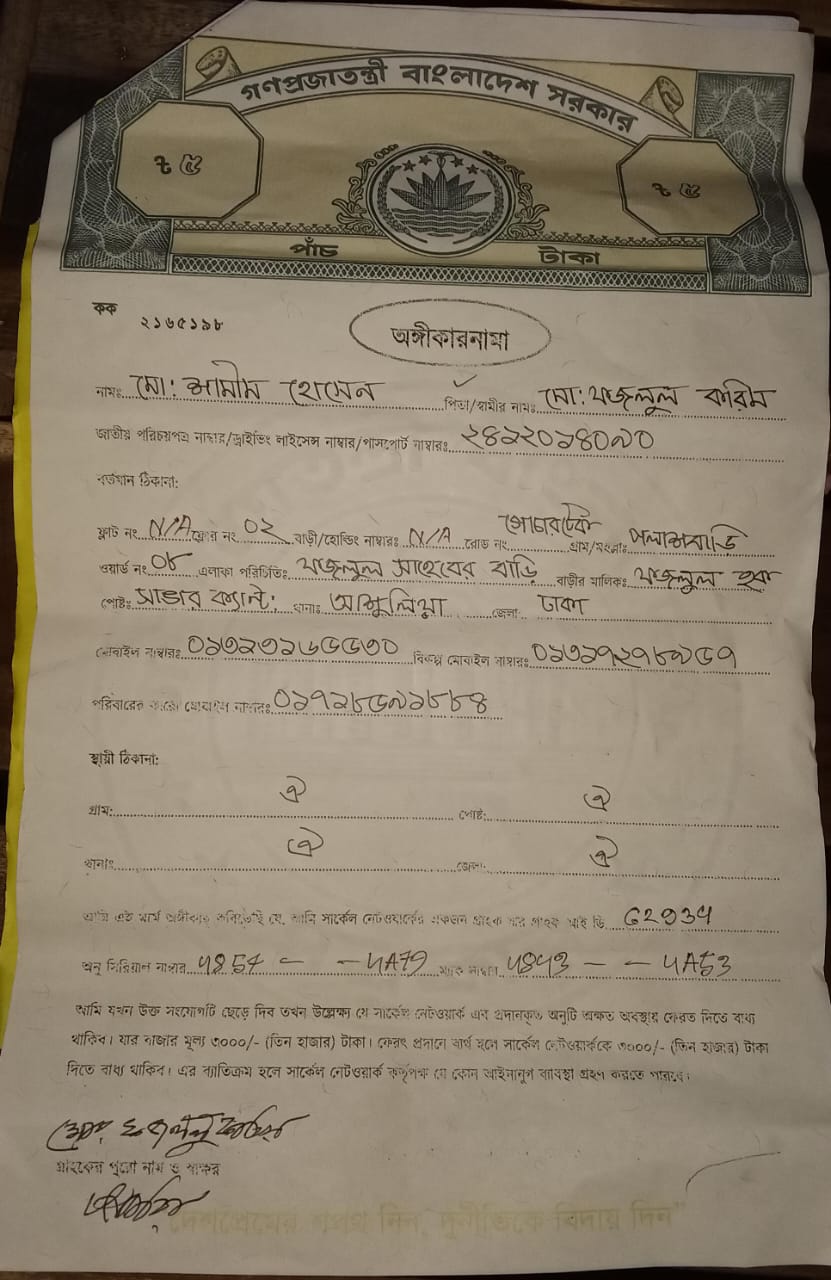 গণপ্রজাতন্ত্রী বাংলাদেশ সরকার
৳ ৫ ৳ ৫
পাঁচ টাকা
কক ২১৬৫১৯৮
অঙ্গীকারনামা
নামঃ মো: শামীম হোসেন পিতা/স্বামীর নামঃ মো: ফজলুল করিম
জাতীয় পরিচয়পত্র নাম্বার/ড্রাইভিং লাইসেন্স নাম্বার/পাসপোর্ট নাম্বারঃ ২৪১২০১৪০৯০
বর্তমান ঠিকানা:
ফ্লাট নং N/A ফ্লোর নং ০২ বাড়ী/হোল্ডিং নাম্বারঃ N/A রোড নং গোচারটেক গ্রাম/মহল্লাঃ পলাশবাড়ি
ওয়ার্ড নং ০৮ এলাকা পরিচিতিঃ ফজলুল সাহেবের বাড়ি বাড়ীর মালিকঃ ফজলুল হক
পোষ্টঃ সাভার ক্যান্ট: থানাঃ আশুলিয়া জেলা: ঢাকা
মোবাইল নাম্বারঃ বিকল্প মোবাইল নাম্বারঃ
পরিবারের কারো মোবাইল নাম্বারঃ
স্থায়ী ঠিকানা:
গ্রাম: ঐ পোষ্ট: ঐ
থানাঃ ঐ জেলা: ঐ
আমি এই মার্মে অঙ্গীকার করিতেছি যে, আমি সার্কেল নেটওয়ার্কের একজন গ্রাহক যার গ্রাহক আই ডি G2934
অনু সিরিয়াল নাম্বার 4854 - - 4A79 ম্যাক নাম্বার 4843 - - 4A53
আমি যখন উক্ত সংযোগটি ছেড়ে দিব তখন উল্লেক্ষ্য যে সার্কেল নেটওয়ার্ক এর প্রদানকৃত অনুটি অক্ষত অবস্থায় ফেরত দিতে বাধ্য
থাকিব। যার বাজার মূল্য ৩০০০/- (তিন হাজার) টাকা। ফেরৎ প্রদানে ব্যর্থ হলে সার্কেল নেটওয়ার্ককে ৩০০০/- (তিন হাজার) টাকা
দিতে বাধ্য থাকিব। এর ব্যাতিক্রম হলে সার্কেল নেটওয়ার্ক কর্তৃপক্ষ যে কোন আইনানুগ ব্যাবস্থা গ্রহণ করতে পারবে।
মোঃ ফজলুল করিম
গ্রাহকের পুরো নাম ও স্বাক্ষর
"দেশপ্রেমের শপথ নিন, দুর্নীতিকে বিদায় দিন"